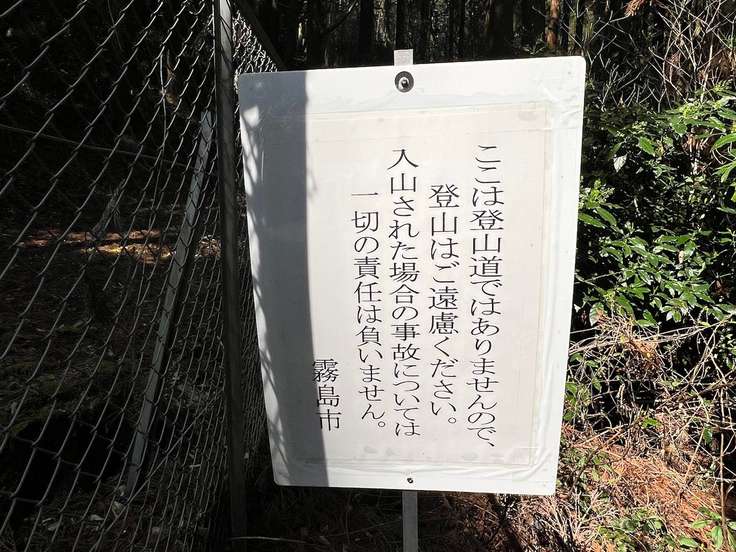 ここは登山道ではありませんので、
登山はご遠慮ください。
入山された場合の事故については
一切の責任は負いません。
霧島市